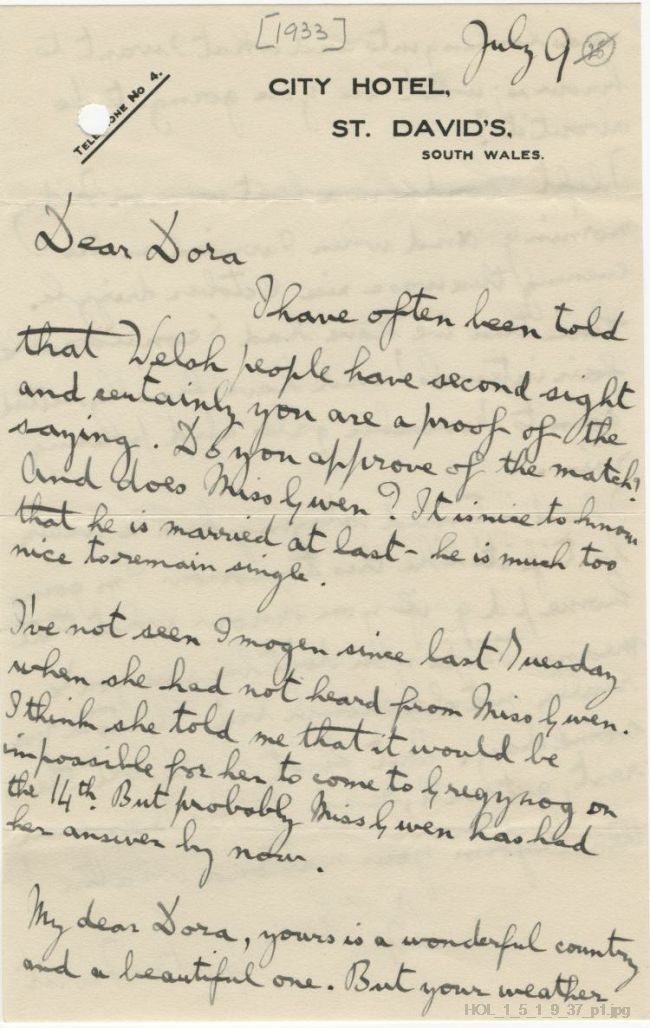 [1933]
July 9
25
CITY HOTEL,
ST. DAVID'S,
SOUTH WALES.
TEL ONE NO 4.
Dear Dora
I have often been told
that Welsh people have second sight
and certainly you are a proof of the
saying. Do you approve of the match?
And does Miss Gwen? It is nice to know
that he is married at last - he is much too
nice to remain single.
I've not seen Imogen since last Tuesday
when she had not heard from Miss Gwen.
I think she told me that it would be
impossible for her to come to Gregynog on
the 14th. But probably Miss Gwen has had
her answer by now.
My dear Dora, yours is a wonderful country
and a beautiful one. But your weather
HOL_1_5_1_9_37_p1.jpg